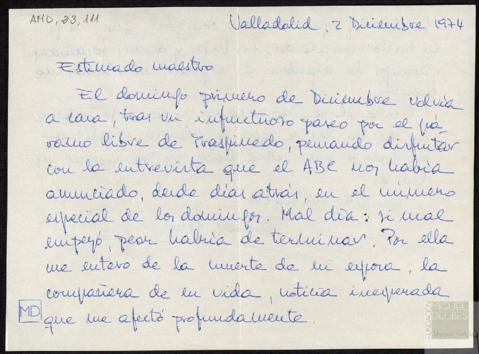 AMD, 23, 111
Valladolid, 2 Diciembre 1974
Estimado maestro
El domingo primero de Diciembre volvía
a casa, tras un infructuoso paseo por el pá-
ramo libre de Traspinedo, pensando disfrutar
con la entrevista que el ABC nos había
anunciado, desde días atrás, en el número
especial de los domingos. Mal día: si mal
empezó, peor habría de terminar. Por ella
me entero de la muerte de su esposa, la
compañera de su vida, noticia inesperada
que me afectó profundamente.
MD
FUNDACIÓN
MIGUEL
DELIBES